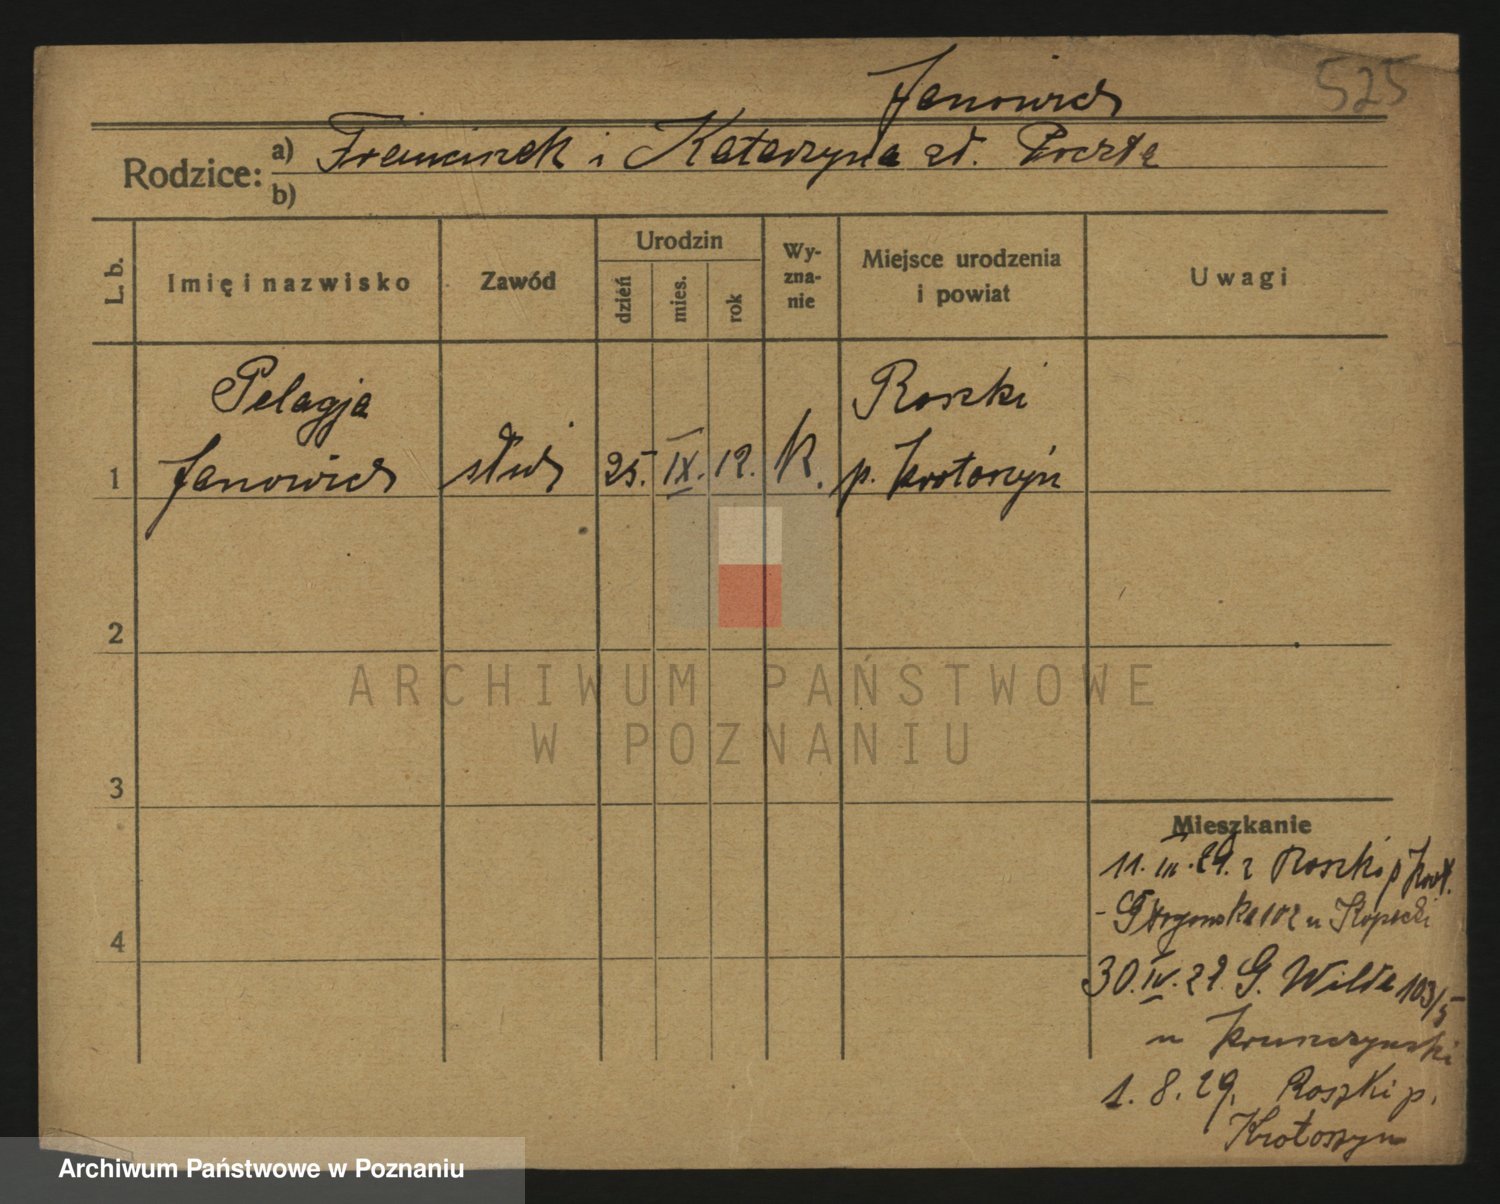 525
Janowicz
Rodzice: a) Franciszek i Katarzyna zd. Poczta
b)
L. b.
Imię i nazwisko
Zawód
Urodzin
dzień
mies.
rok
Wy-
zna-
nie
Miejsce urodzenia
i powiat
Uwagi
Pelagja
Janowicz
służ
25.
IX.
12.
K.
Roszki
p. Krotoszyn
1
2
3
4
Mieszkanie
11. III. 29. z Roszki p Krot.
30. IV. 29. G. Wilda 103/5
u
1. 8. 29. Roszki p.
Krotoszyn
ARCHIWUM PAŃSTWOWE
W POZNANIU
Archiwum Państwowe w Poznaniu